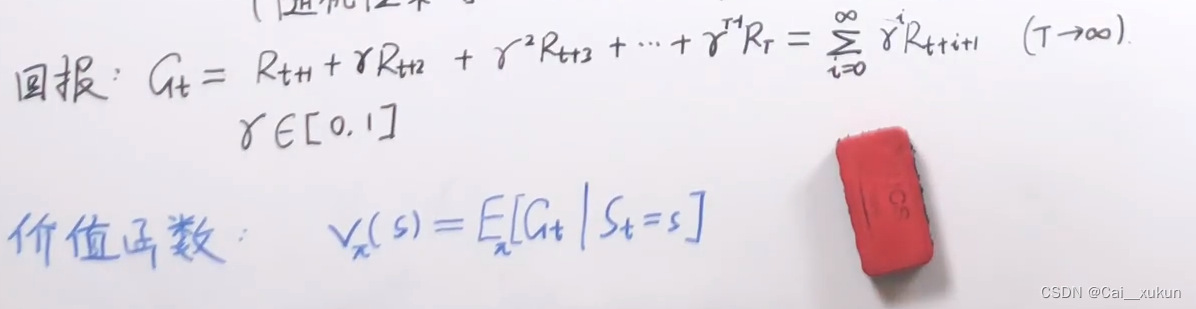 回报: G_t = R_{t+1} + γR_{t+2} + γ²R_{t+3} + ⋯ + γ^{T-1}R_T = ∑_{i=0}^{∞} γ^i R_{t+i+1} (T→∞).
γ∈[0.1]
价值函数: V_π(s) = E_π[G_t | S_t=s]
CSDN @Cai__xukun